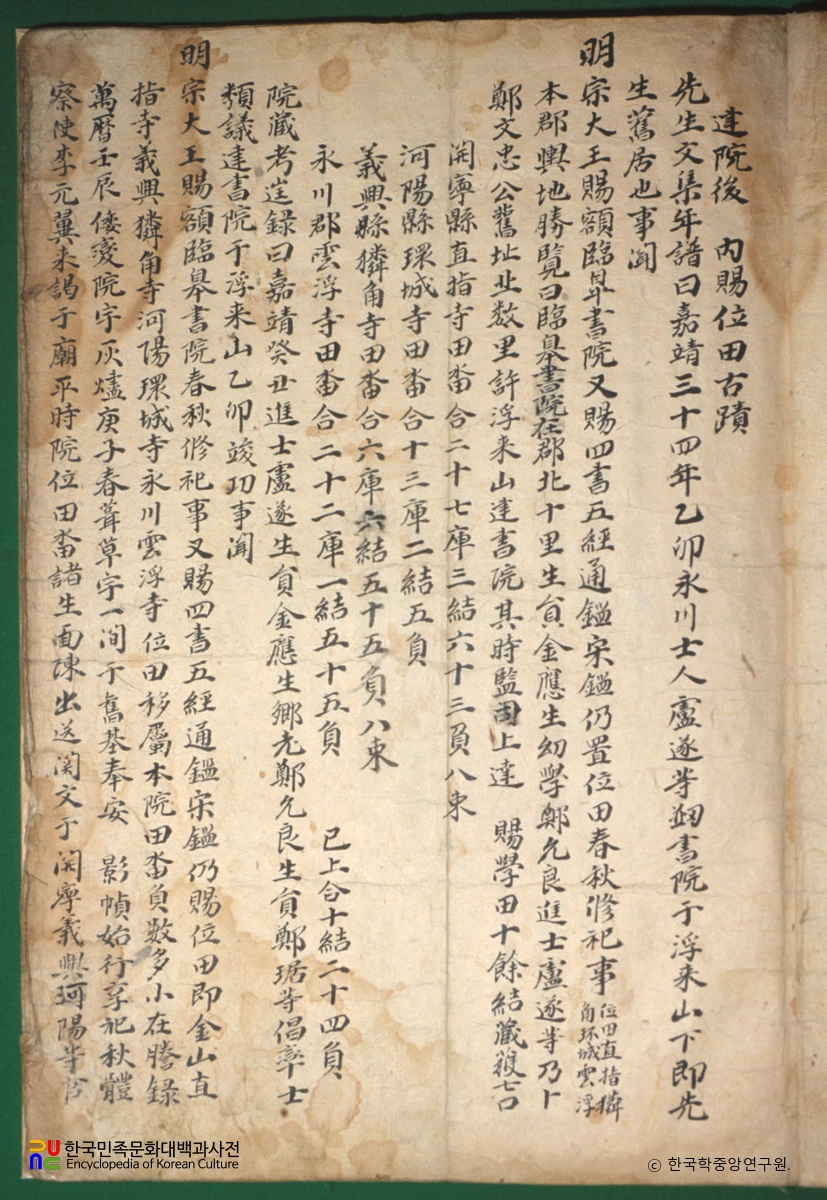 建院後 內賜位田古蹟
先生文集年譜曰嘉靖三十四年乙卯永川士人盧遂等刱書院于浮來山下即先
生舊居也事聞
明宗大王賜額臨皐書院又賜四書五經通鑑宋鑑仍置位田春秋修祀事位田直指獜角环城雲浮
本郡輿地勝覽曰臨皐書院在郡北十里生負金應生幼學鄭允良進士盧遂等乃卜
鄭文忠公舊址北数里許浮来山建書院其時監司上達 賜學田十餘結藏獲
開寧縣直指寺田畓合二十七庫三結六十三負八束
河陽縣環城寺田畓合十三庫二結五負
義興縣獜角寺田畓合六庫六結五十五負八束
永川郡雲浮寺田畓合二十二庫一結五十五負 已上合十結二十四負
院藏考徃録曰嘉靖癸丑進士盧遂生負金應生鄉老鄭允良生負鄭琚等倡率士
類議建書院于浮来山乙卯竣功事聞
明宗大王賜額臨皐書院春秋修祀事又賜四書五經通鑑宋鑑仍賜位田即金山直
指寺義興獜角寺河陽環城寺永川雲浮寺位田移屬本院田畓負數多小在謄録
萬曆壬辰倭變院宇灰燼庚子春葺草宇一間于舊基奉安 影幀始行享祀秋體
察使李元翼来謁于廟平時院位田畓諸生面陳出送関文于開寧義興河陽等官